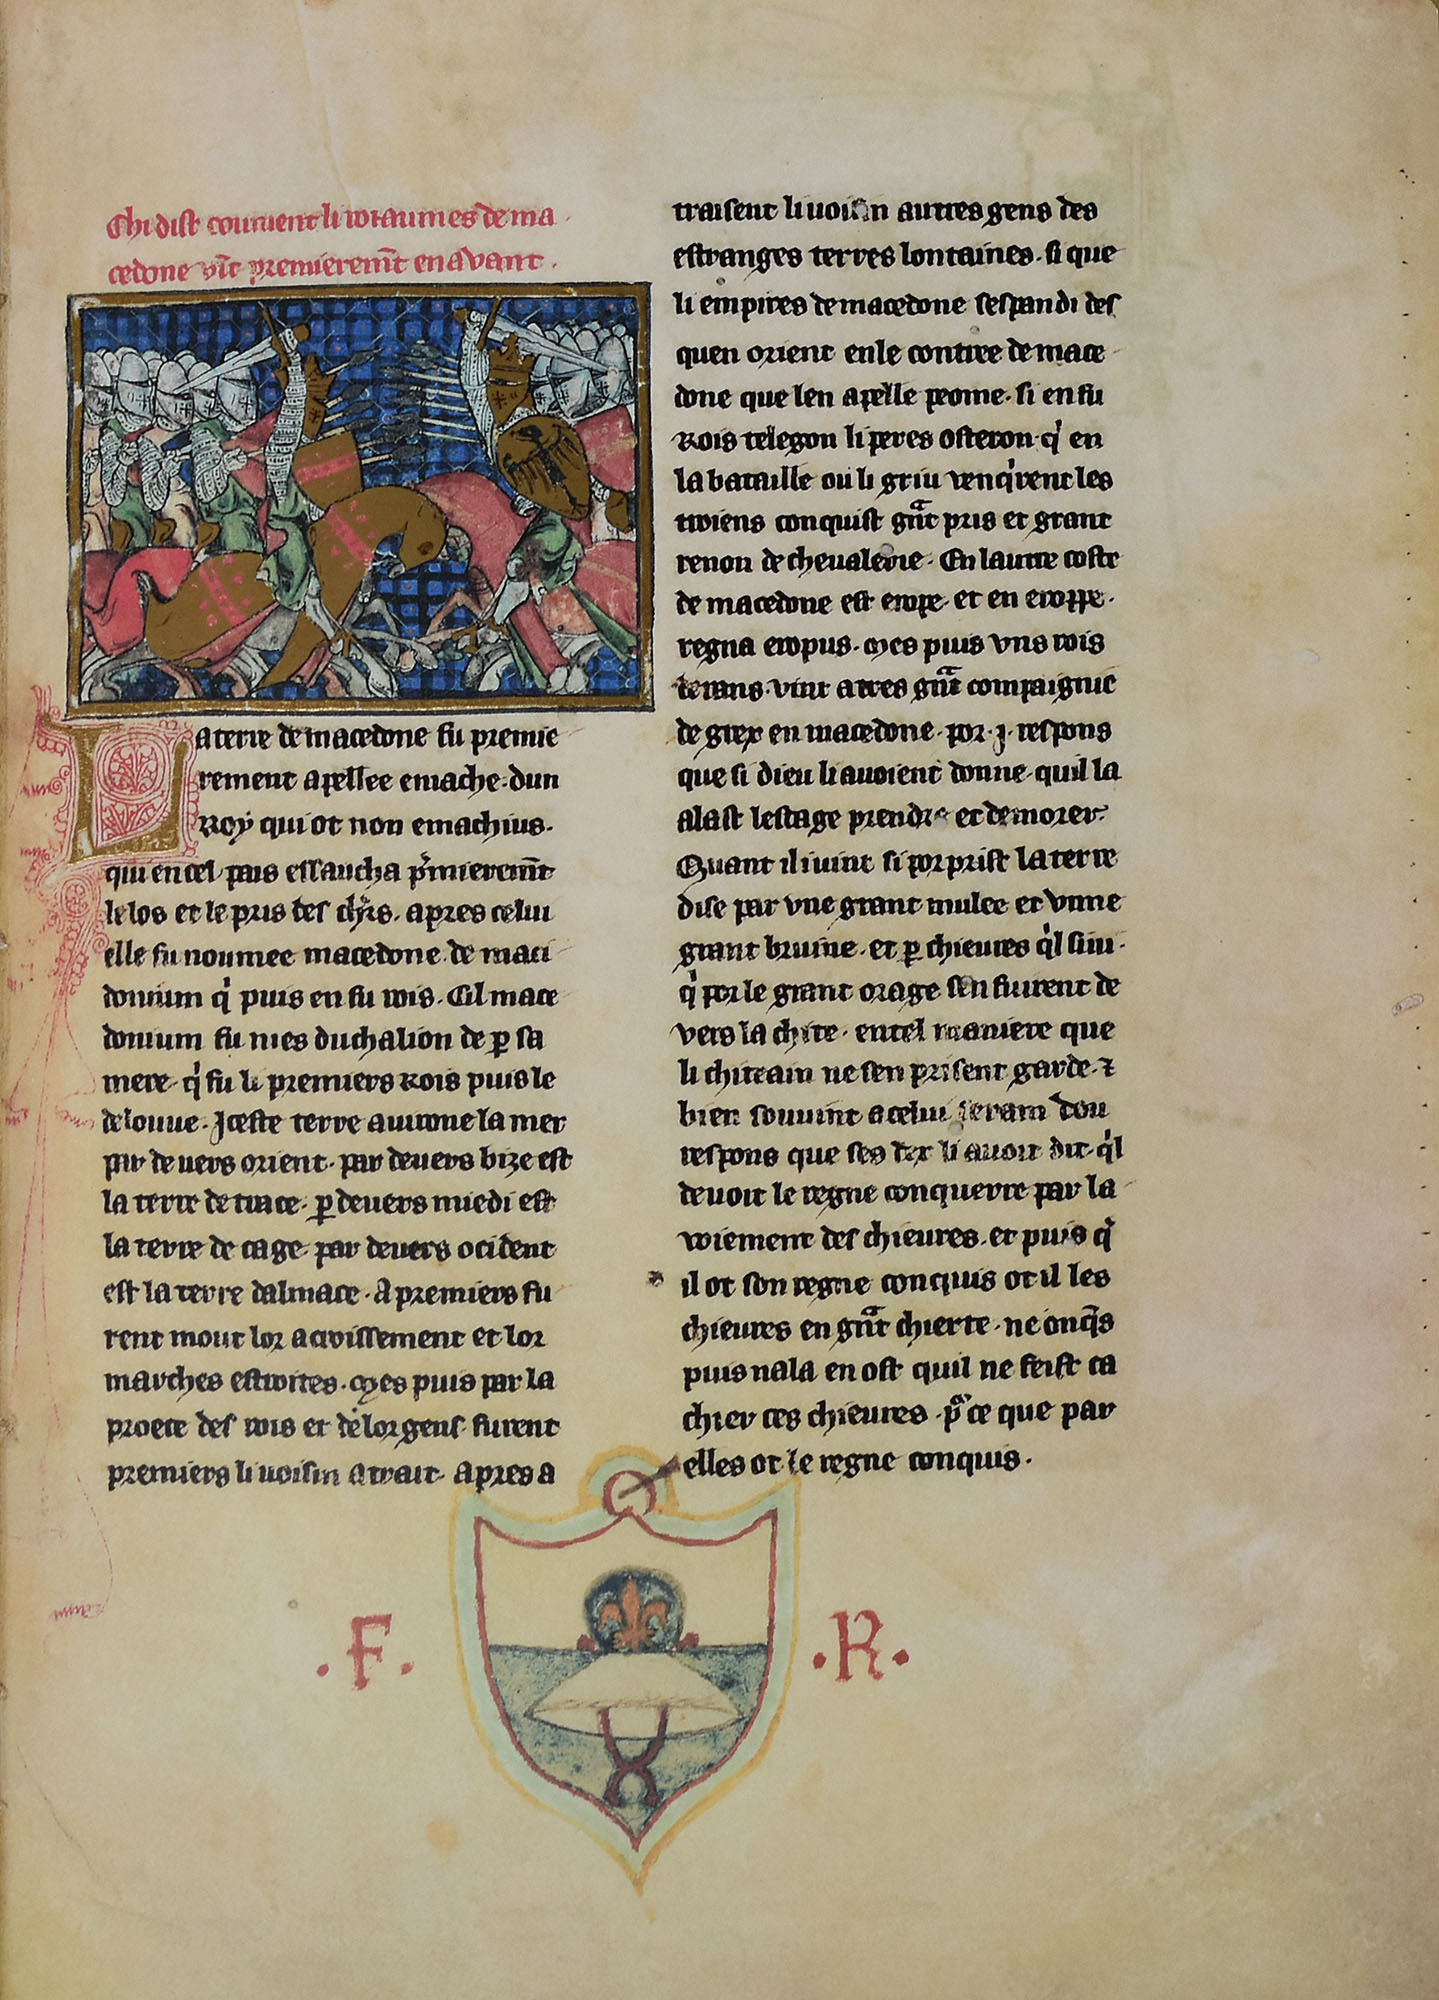 Chi dist coument li roiaumes de ma
cedone vīt premieremt̄ en avant.
La terre de macedone fu premie
rement apellee emache. dun
Roy qui ot non emachius.
qui en cel pais essaucha p̍mieremt̄
le los et le pris des chrs̄. apres celui
elle fu noumee macedone de maci
donium q̍ puis en fu rois. Cil mace
donium fu nies duchalion de ꝑ sa
mere. q̍ fu li premiers Rois puis le
delouue. Iceste terre avirone la mer
par devers orient. par devers bize est
la terre de trace. ꝑ devers miedi est
la terre de cage. par devers ocident
est la terre dalmace. A premiers fu
rent mout lor acroissement et lor
marches estroites. Mes puis par la
proece des rois et de lor gens furent
premiers li voisin atrait. apres a
traisent li voisin autres gens des
estranges terres lontaines. si que
li empires de macedone sespandi des
quen orient en le contree de mace
done que len apelle peome. si en fu
Rois telegon li peres osteron. q̍ en
la bataille ou li griu venq̍rent les
troiens conquist gn̄t pris et grant
renon de chevalerie. En lautre coste
de macedone est erope. et en eroppe.
regna eropus. Mes puis vns rois
vint a tres gn̄t compaignie
de grex en macedone. por .j. respons
que si dieu li avoient donne. quil la
alast lestage prendre et demorer.
Quant il i vint si porprist la terre
dise par vne grant mulee et vnne
grant bruine. et ꝑ chieures q̍l siui.
q̍ por le grant orage sen fuirent de
vers la chite. en tel maniere que
li chitain ne sen prisent garde. ⁊
bien souvint a celui seram dou
respons que ses dex li avoit dit. q̍l
devoit le regne conquerre par la
voiement des chieures. et puis q̍
il ot son regne conquis ot il les
chieures en gn̄t chierte. ne onq̄s
puis nala en ost quil ne feist ca
chier ces chieures. p̍ ce que par
elles ot le regne conquis.
.F. .R.